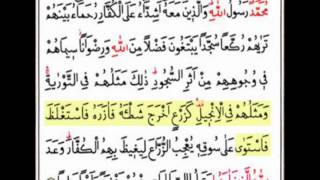 مُحَمَّدٌ رَسُولُ اللّٰهِ وَالَّذ۪ينَ مَعَهُٓ اَشِدَّٓاءُ عَلَى الْكُفَّارِ رُحَمَٓاءُ بَيْنَهُمْ
تَرٰيهُمْ رُكَّعًا سُجَّدًا يَبْتَغُونَ فَضْلًا مِنَ اللّٰهِ وَرِضْوَانًا س۪يمَاهُمْ
ف۪ي وُجُوهِهِمْ مِنْ اَثَرِ السُّجُودِ ذٰلِكَ مَثَلُهُمْ فِي التَّوْرٰيةِ
وَمَثَلُهُمْ فِي الْاِنْج۪يلِ كَزَرْعٍ اَخْرَجَ شَطْـَٔهُ فَاٰزَرَهُ فَاسْتَغْلَظَ
فَاسْتَوٰى عَلٰى سُوقِه۪ يُعْجِبُ الزُّرَّاعَ لِيَغ۪يظَ بِهِمُ الْكُفَّارَ وَعَدَ